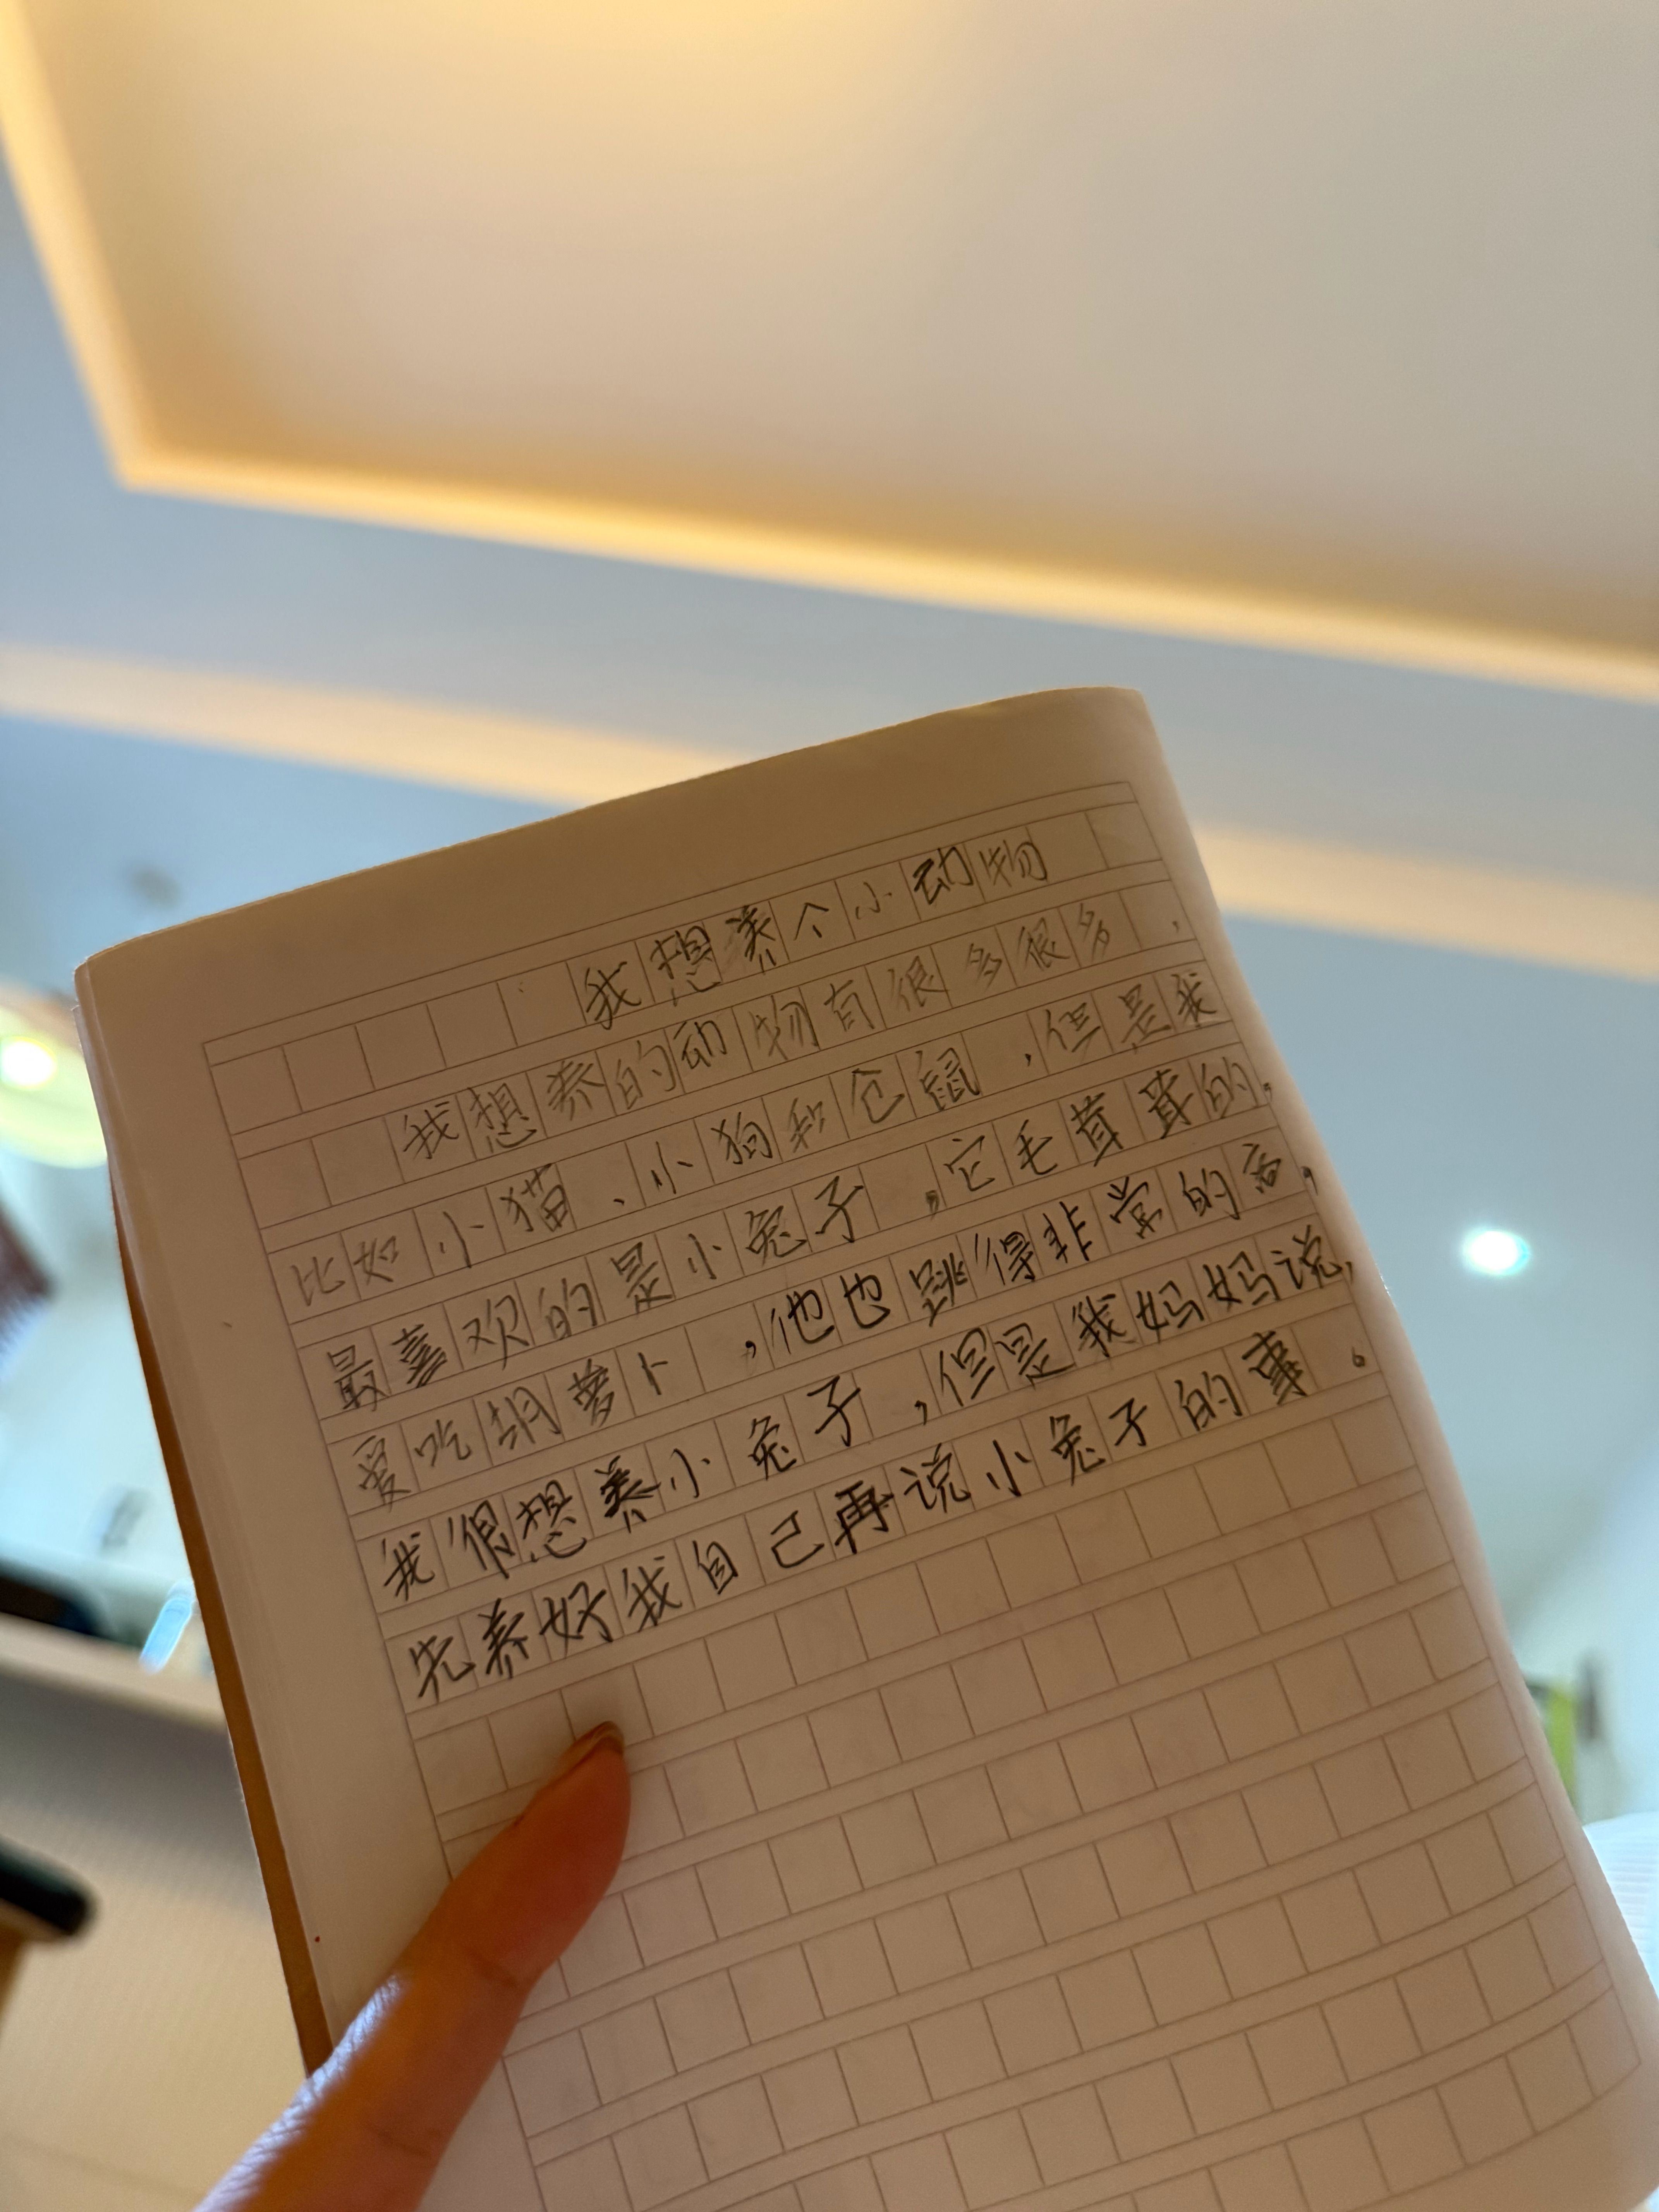 我想养个小动物
我想养的动物有很多很多，
比如小猫、小狗和仓鼠，但是我
最喜欢的是小兔子，它毛茸茸的，
爱吃胡萝卜，他也跳得非常的高，
我很想养小兔子，但是我妈妈说，
先养好我自己再说小兔子的事。